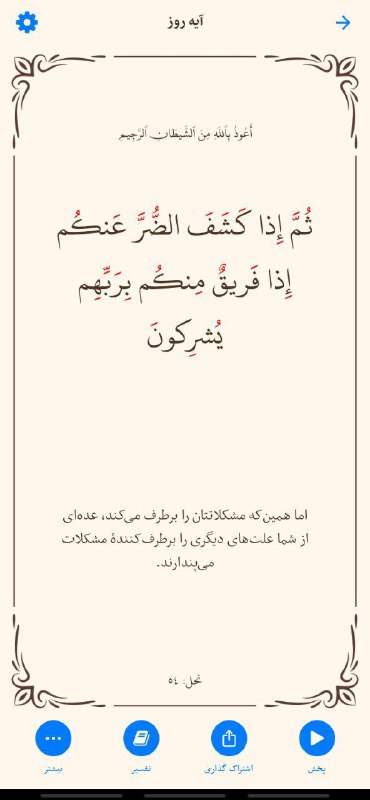 آیه روز
أَعُوذُ بِاللَّهِ مِنَ الشَّيطَانِ الرَّجِيمِ
ثُمَّ إِذا كَشَفَ الضُّرَّ عَنكُم
إِذا فَريقٌ مِنكُم بِرَبِّهِم
يُشرِكونَ
اما همین‌که مشکلاتتان را برطرف می‌کند، عده‌ای
از شما علت‌های دیگری را برطرف‌کنندهٔ مشکلات
می‌پندارند.
نحل: ٥٤
پخش
اشتراک گذاری
تفسیر
بیشتر